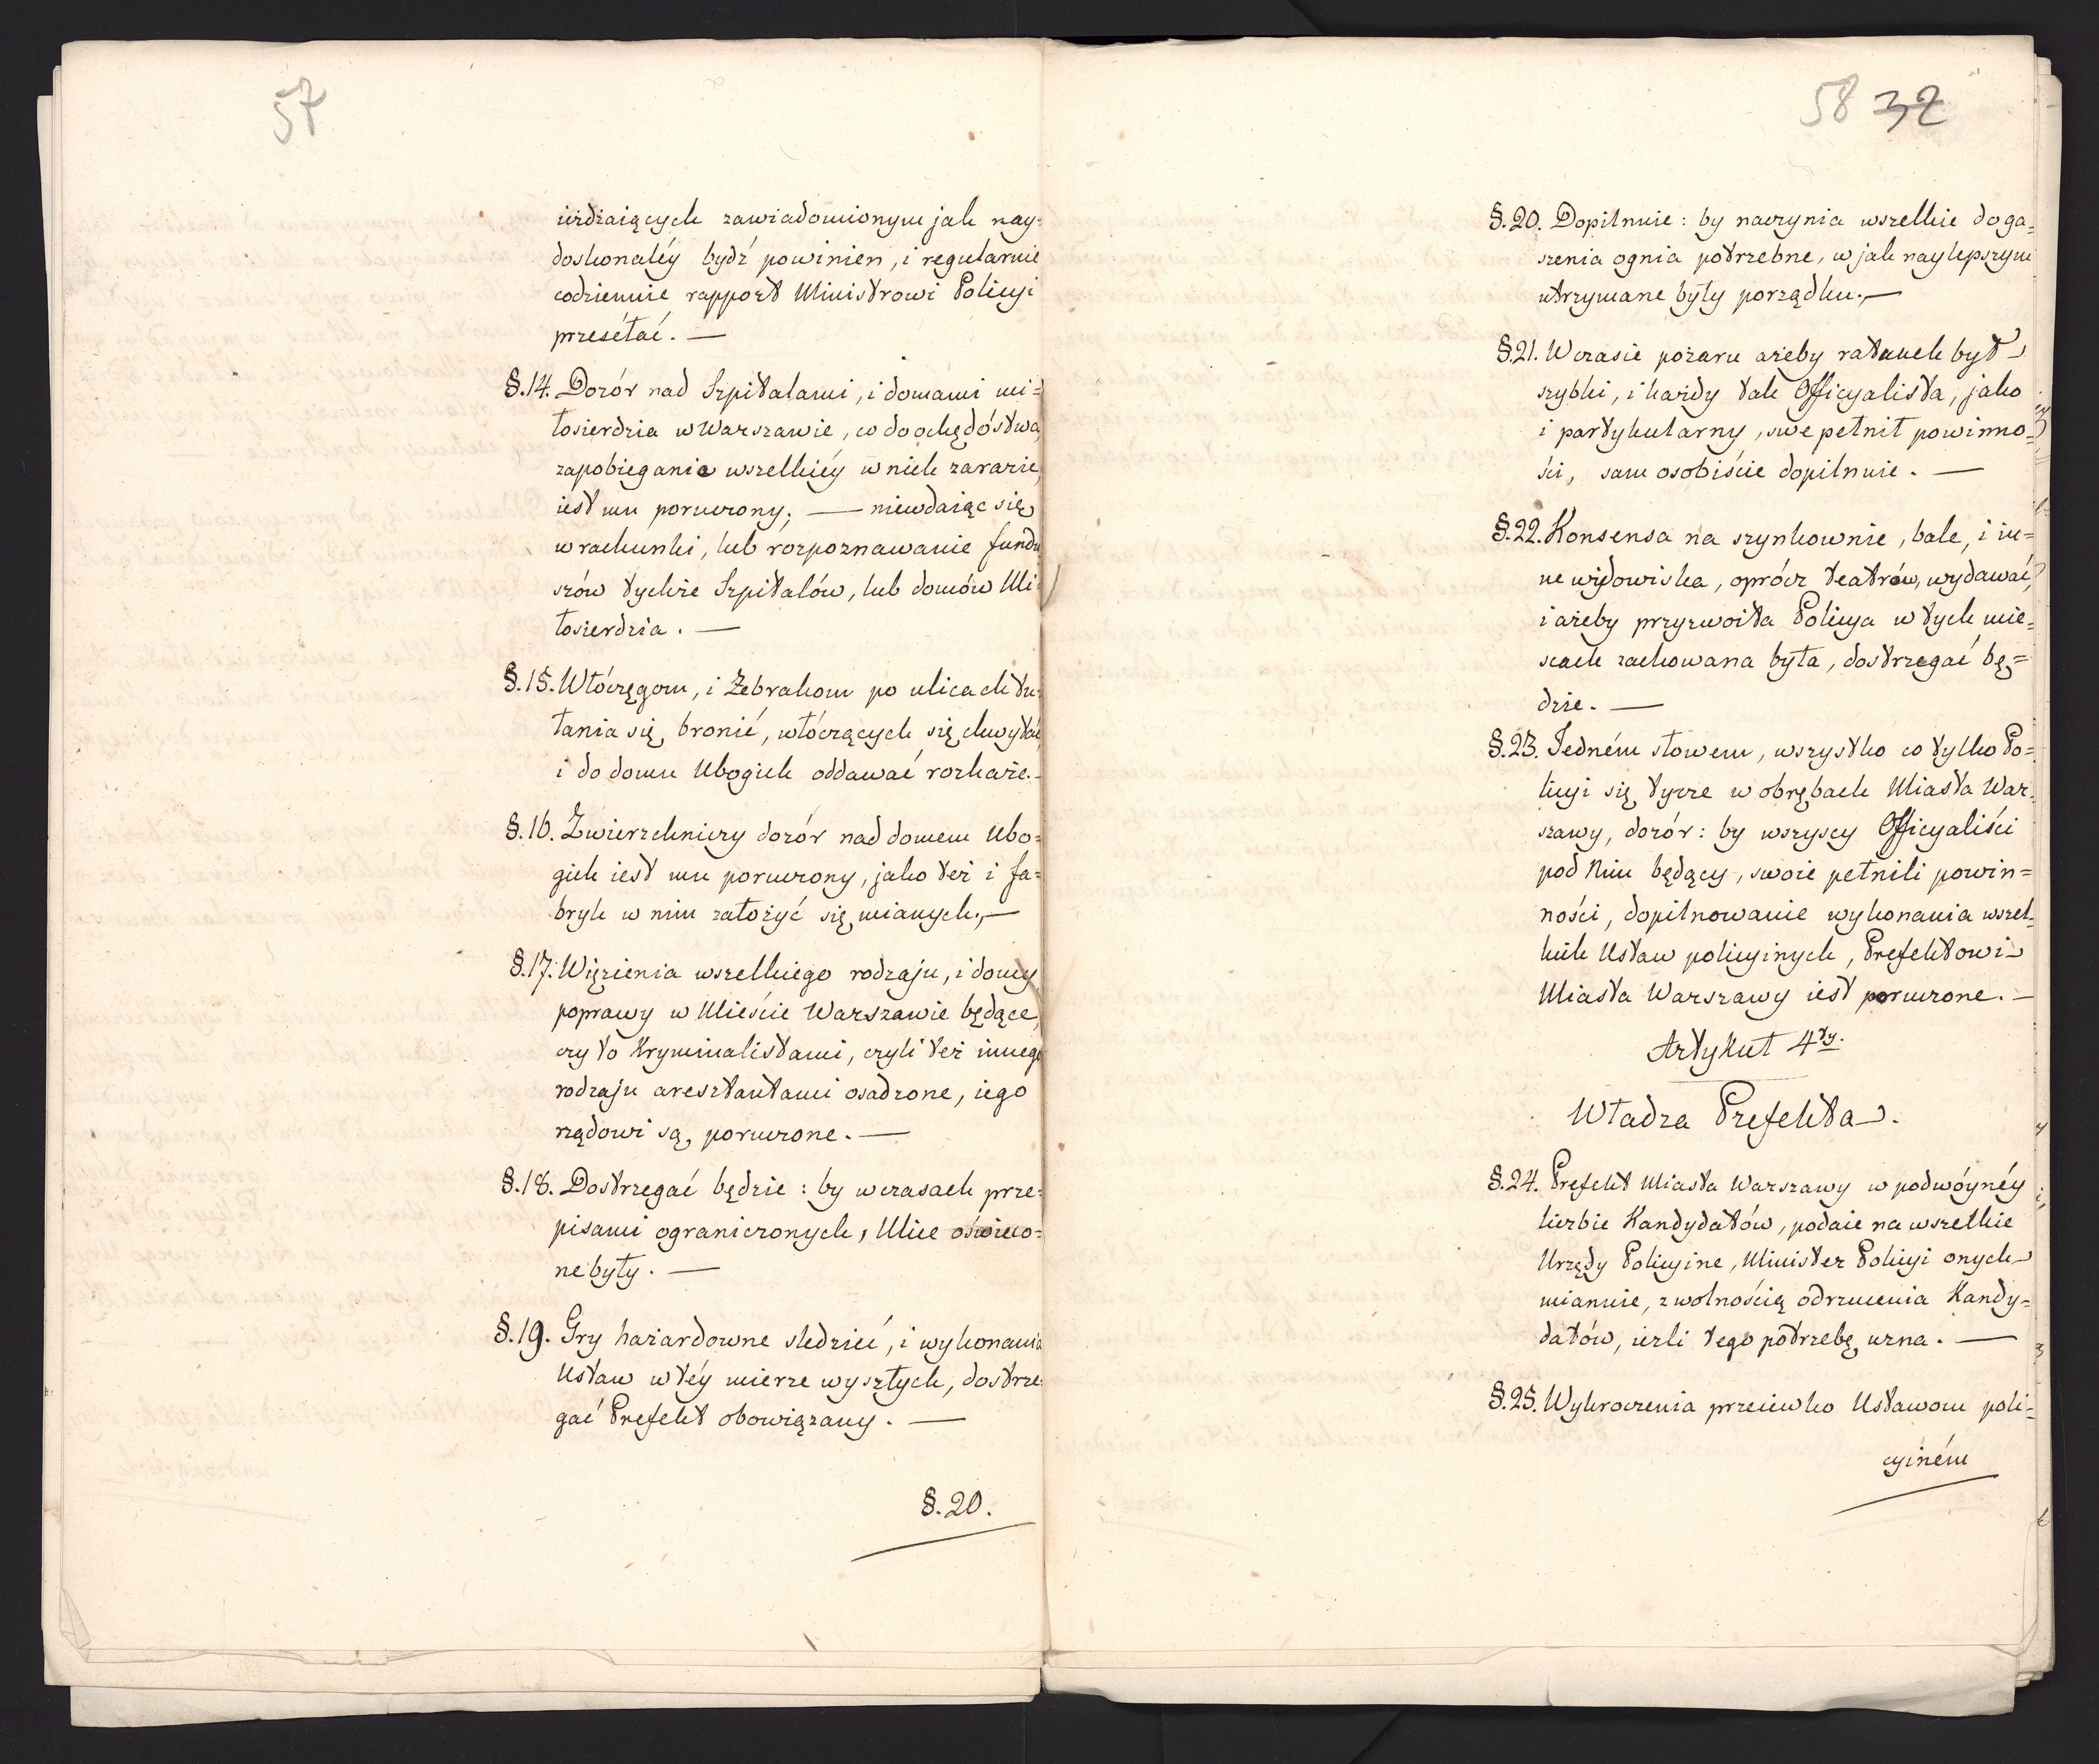 57
ieżdżaiących zawiadomionym jak nay=
doskonaléy bydź powinien, i regularnie
codziennie rapport Ministrowi Policyi
przeséłać. —
§.14. Dozór nad Szpitalami, i domami mi=
łosierdzia w Warszawie, co do ochędóstwa,
zapobiegania wszelkiéy w nich zarazie,
iest mu poruczony; — niewdaiąc się
w rachunki, lub rozpoznawanie fundu
szów tychże Szpitalów, lub domów Mi=
łosierdzia. —
§.15. Włóczęgom, i Żebrakom po ulicach tu=
łania się, bronić, włóczących się chwytać,
i do domu Ubogich oddawać rozkaże. —
§.16. Zwierzchniczy dozór nad domem Ubo=
gich iest mu poruczony, jako też i fa=
bryk w nim założyć się mianych. —
§.17. Więzienia wszelkiego rodzaju, i domy
poprawy w Mieście Warszawie będące,
czy to Kryminalistami, czyli też innego
rodzaju aresztantami osadzone, iego
rządowi są, poruczone. —
§.18. Dostrzegać będzie: by w czasach prze=
pisami ograniczonych, Ulice oświeco=
ne były. —
§.19. Gry hazardowne sledzić, i wykonania
Ustaw w téy mierze wyszłych, dostrze=
gać Prefekt obowiązany. —
§.20.
58 32
§.20. Dopilnuie: by naczynia wszelkie do ga=
szenia ognia potrzebne, w jak naylepszym
utrzymane były porządku. —
§.21. W czasie pożaru ażeby ratunek był
szybki, i każdy tak Officyalista, jako
i partykularny, swe pełnił powinno=
ści, sam osobiście dopilnuie. —
§.22. Konsensa na szynkownie, bale, i in=
ne widowiska, oprócz teatrów, wydawać,
i ażeby przyzwoita Policya w tych mie=
scach zachowana była, dostrzegać bę=
dzie. —
§.23. Jedném słowem, wszystko co tylko Po=
licyi się tycze w obrębach Miasta War=
szawy, dozór: by wszyscy Officyaliści
pod Nim będący, swoie pełnili powin=
ności, dopilnowanie wykonania wszel=
kich Ustaw policyinych, Prefektowi
Miasta Warszawy iest poruczone. —
Artykuł 4ty.
Władza Prefekta.
§.24. Prefekt Miasta Warszawy w podwóynéy
liczbie Kandydatów, podaie na wszelkie
Urzędy Policyine, Minister Policyi onych
mianuie, z wolnością odrzucenia Kandy=
datów, ieżli tego potrzebę uzna. —
§.25. Wykroczenia przeciwko Ustawom poli=
cyiném